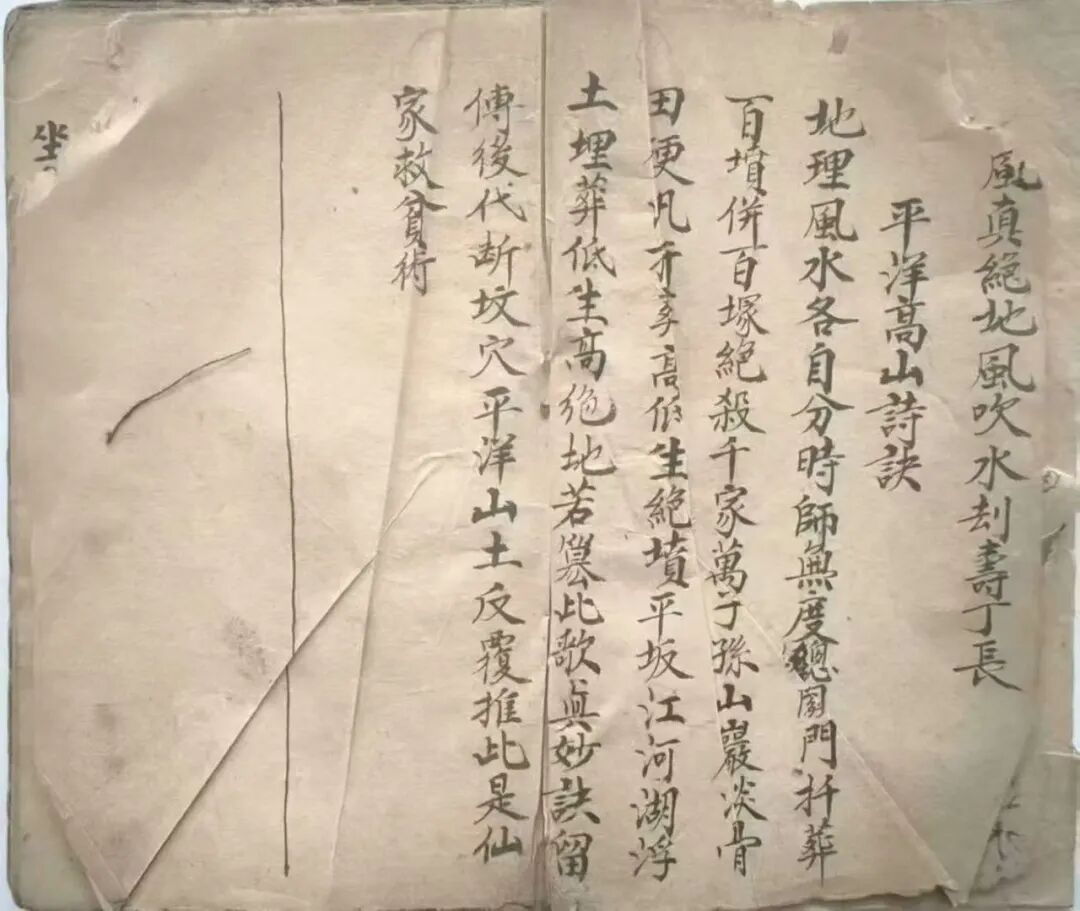 風真絕地風吹水刦壽丁長
平洋高山詩訣
地理風水各自分時師無度總門扦葬
百墳併百塚絕殺千家萬子孫山巖淡骨
田更凡高低生絕墳平坂江河湖浮
土埋葬低生高絕地若此歌眞妙訣留
傳後代断坟穴平洋山土反覆推此是仙
家救貧術
坐